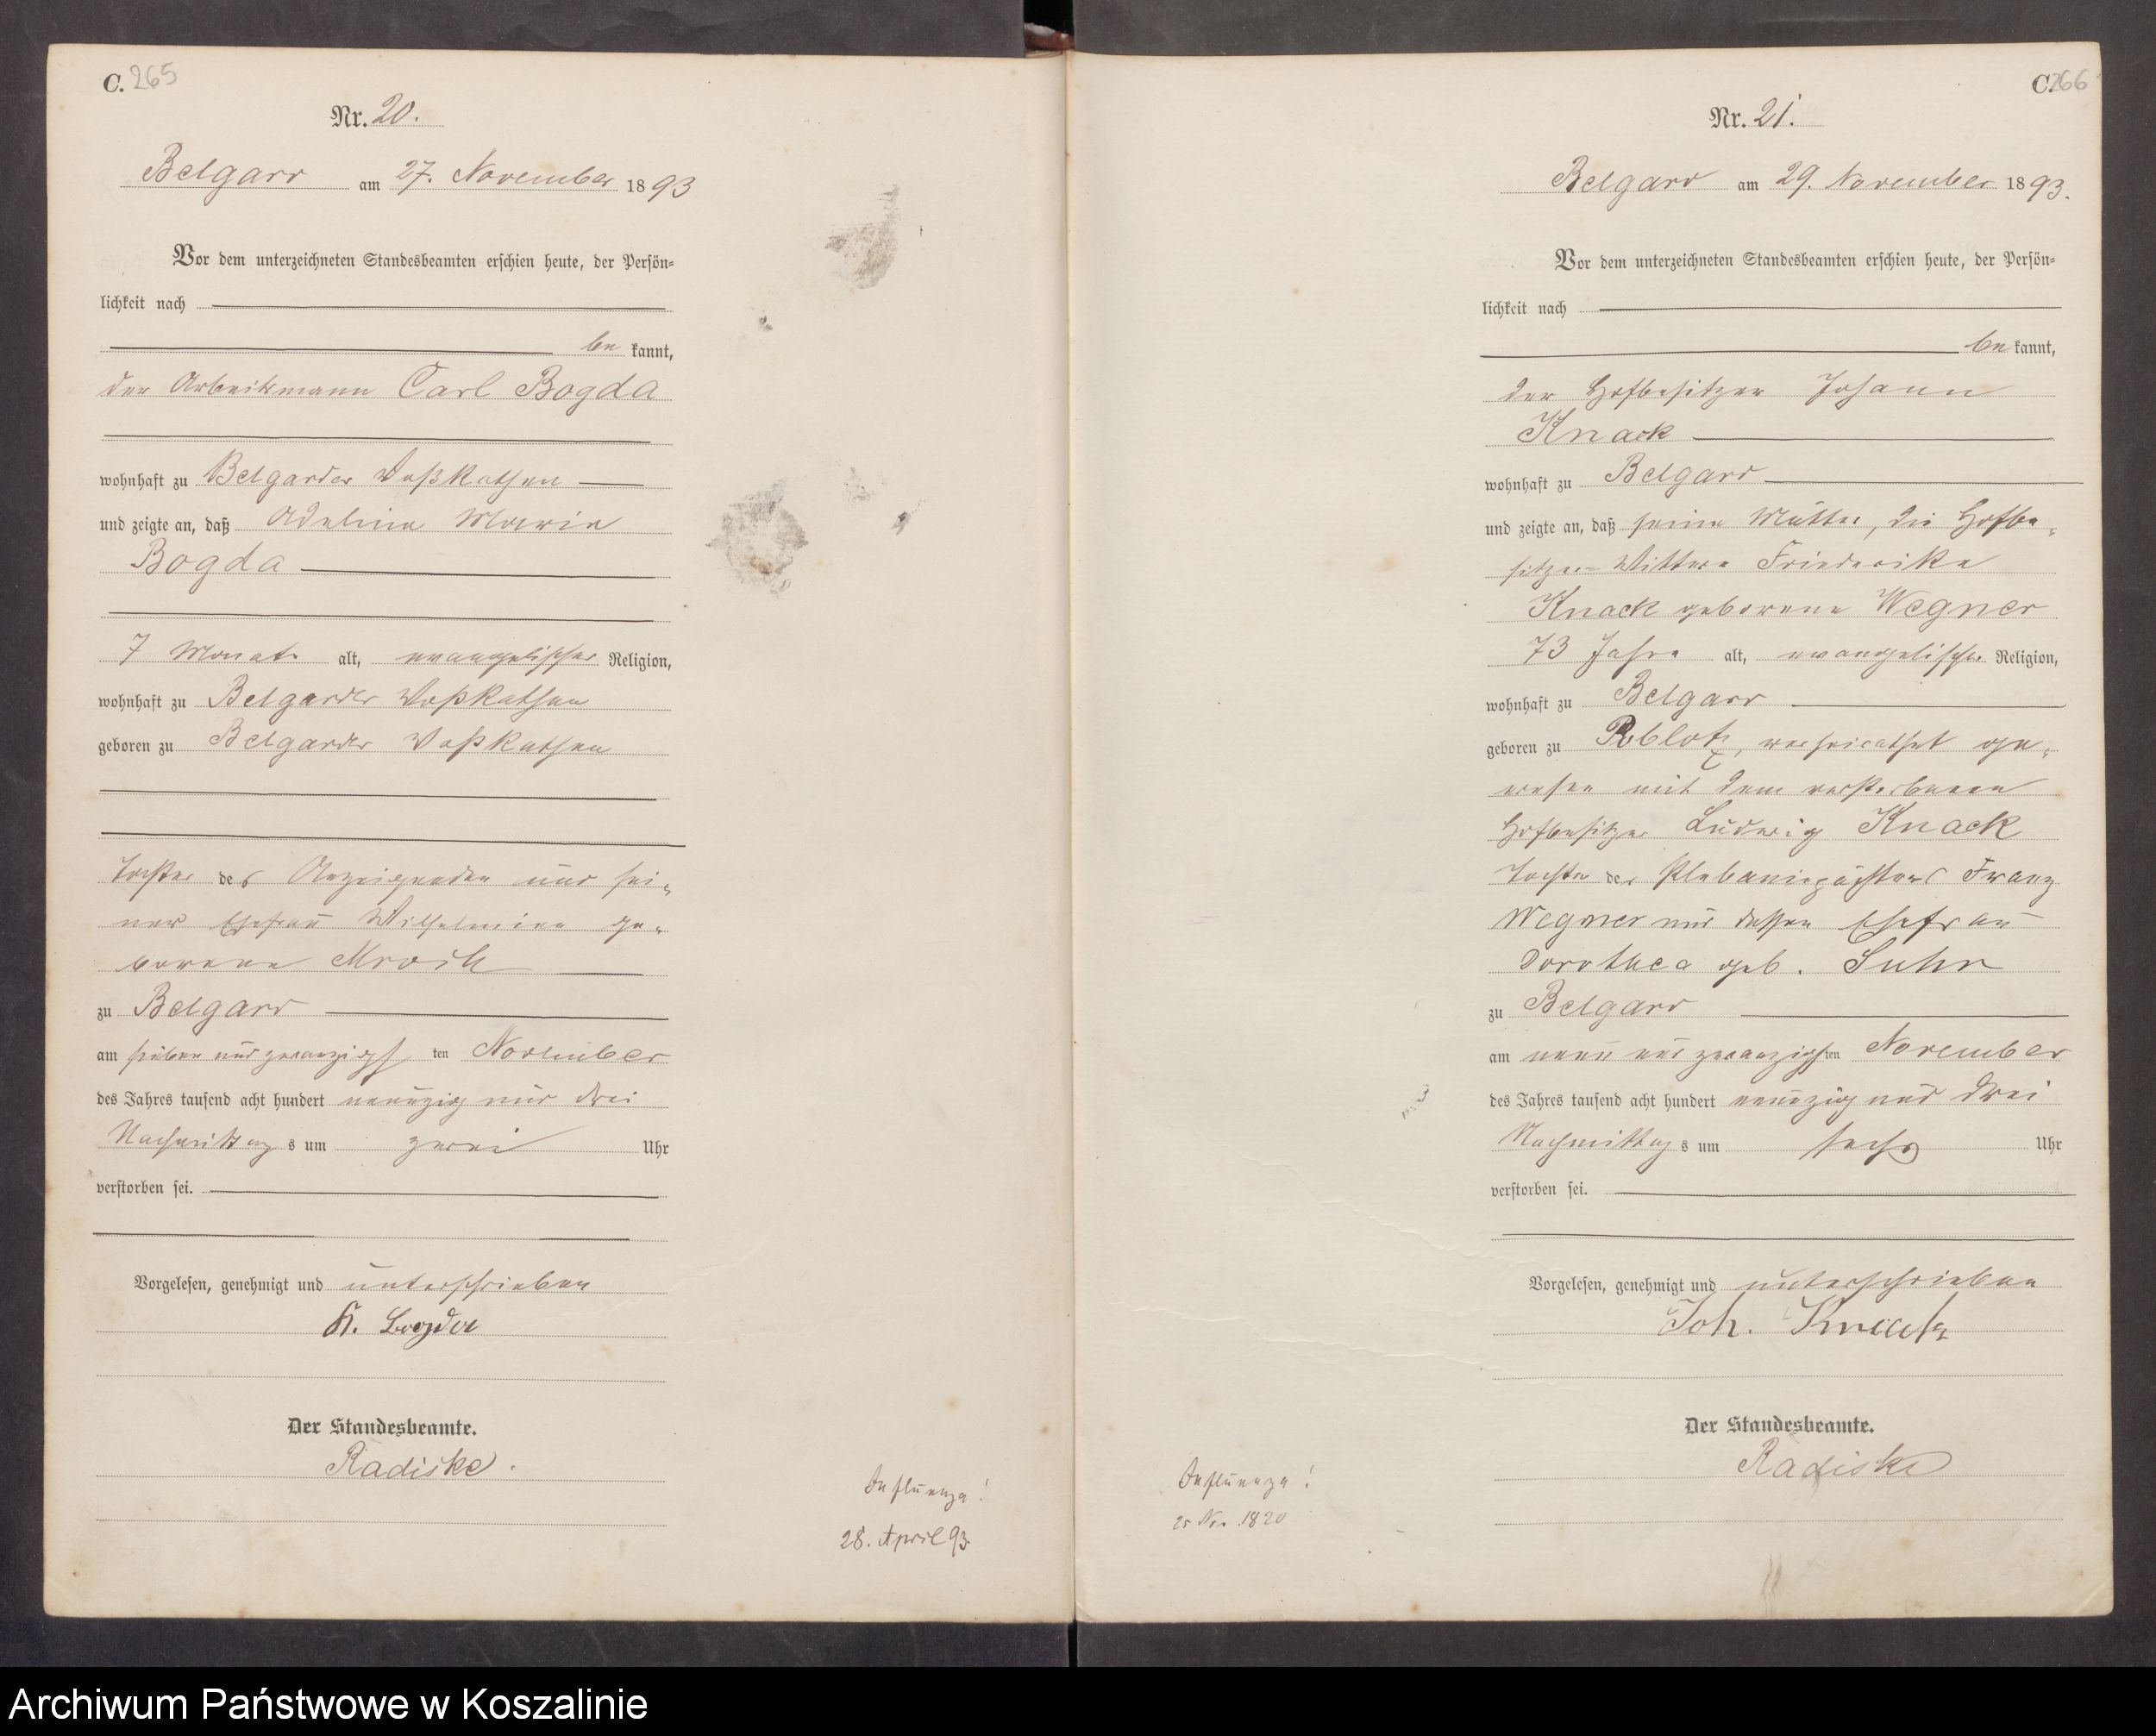 C. 265
Nr. 20.
Belgard am 27. November 1893
Vor dem unterzeichneten Standesbeamten erschien heute, der Persön-
lichkeit nach
be kannt,
der Arbeitsmann Carl Bogda
wohnhaft zu Belgarder Voßkathen
und zeigte an, daß Adeline Marie
Bogda
7 Monat alt, evangelischer Religion,
wohnhaft zu Belgarder Voßkathen
geboren zu Belgarder Voßkathen
Tochter des Anzeigenden und sei-
ner Ehefrau Wilhelmine ge-
borene
zu Belgard
am sieben und zwanzigsten November
des Jahres tausend acht hundert neunzig und drei
Nachmittags um zwei Uhr
verstorben sei.
Vorgelesen, genehmigt und unterschrieben
K. Bogda
Der Standesbeamte.
Radiske.
Influenza!
28. April 93.
C. 266
Nr. 21.
Belgard am 29. November 1893.
Vor dem unterzeichneten Standesbeamten erschien heute, der Persön-
lichkeit nach
be kannt,
der Hofbesitzer Johann
Knack
wohnhaft zu Belgard
und zeigte an, daß seine Mutter, die Hofbe-
sitzer-Wittwe Friederike
Knack geborene Wegner
73 Jahre alt, evangelischer Religion,
wohnhaft zu Belgard
geboren zu Roblotz, verheirathet ge-
wesen mit dem verstorbenen
Hofbesitzer Ludwig Knack
Tochter des Plebaniepächters Franz
Wegner und dessen Ehefrau
Dorothea geb. Suhr
zu Belgard
am neun und zwanzigsten November
des Jahres tausend acht hundert neunzig und drei
Nachmittags um sechs Uhr
verstorben sei.
Vorgelesen, genehmigt und unterschrieben
Joh. Knack
Der Standesbeamte.
Radiske
Influenza!
25 Nov. 1820
Archiwum Państwowe w Koszalinie